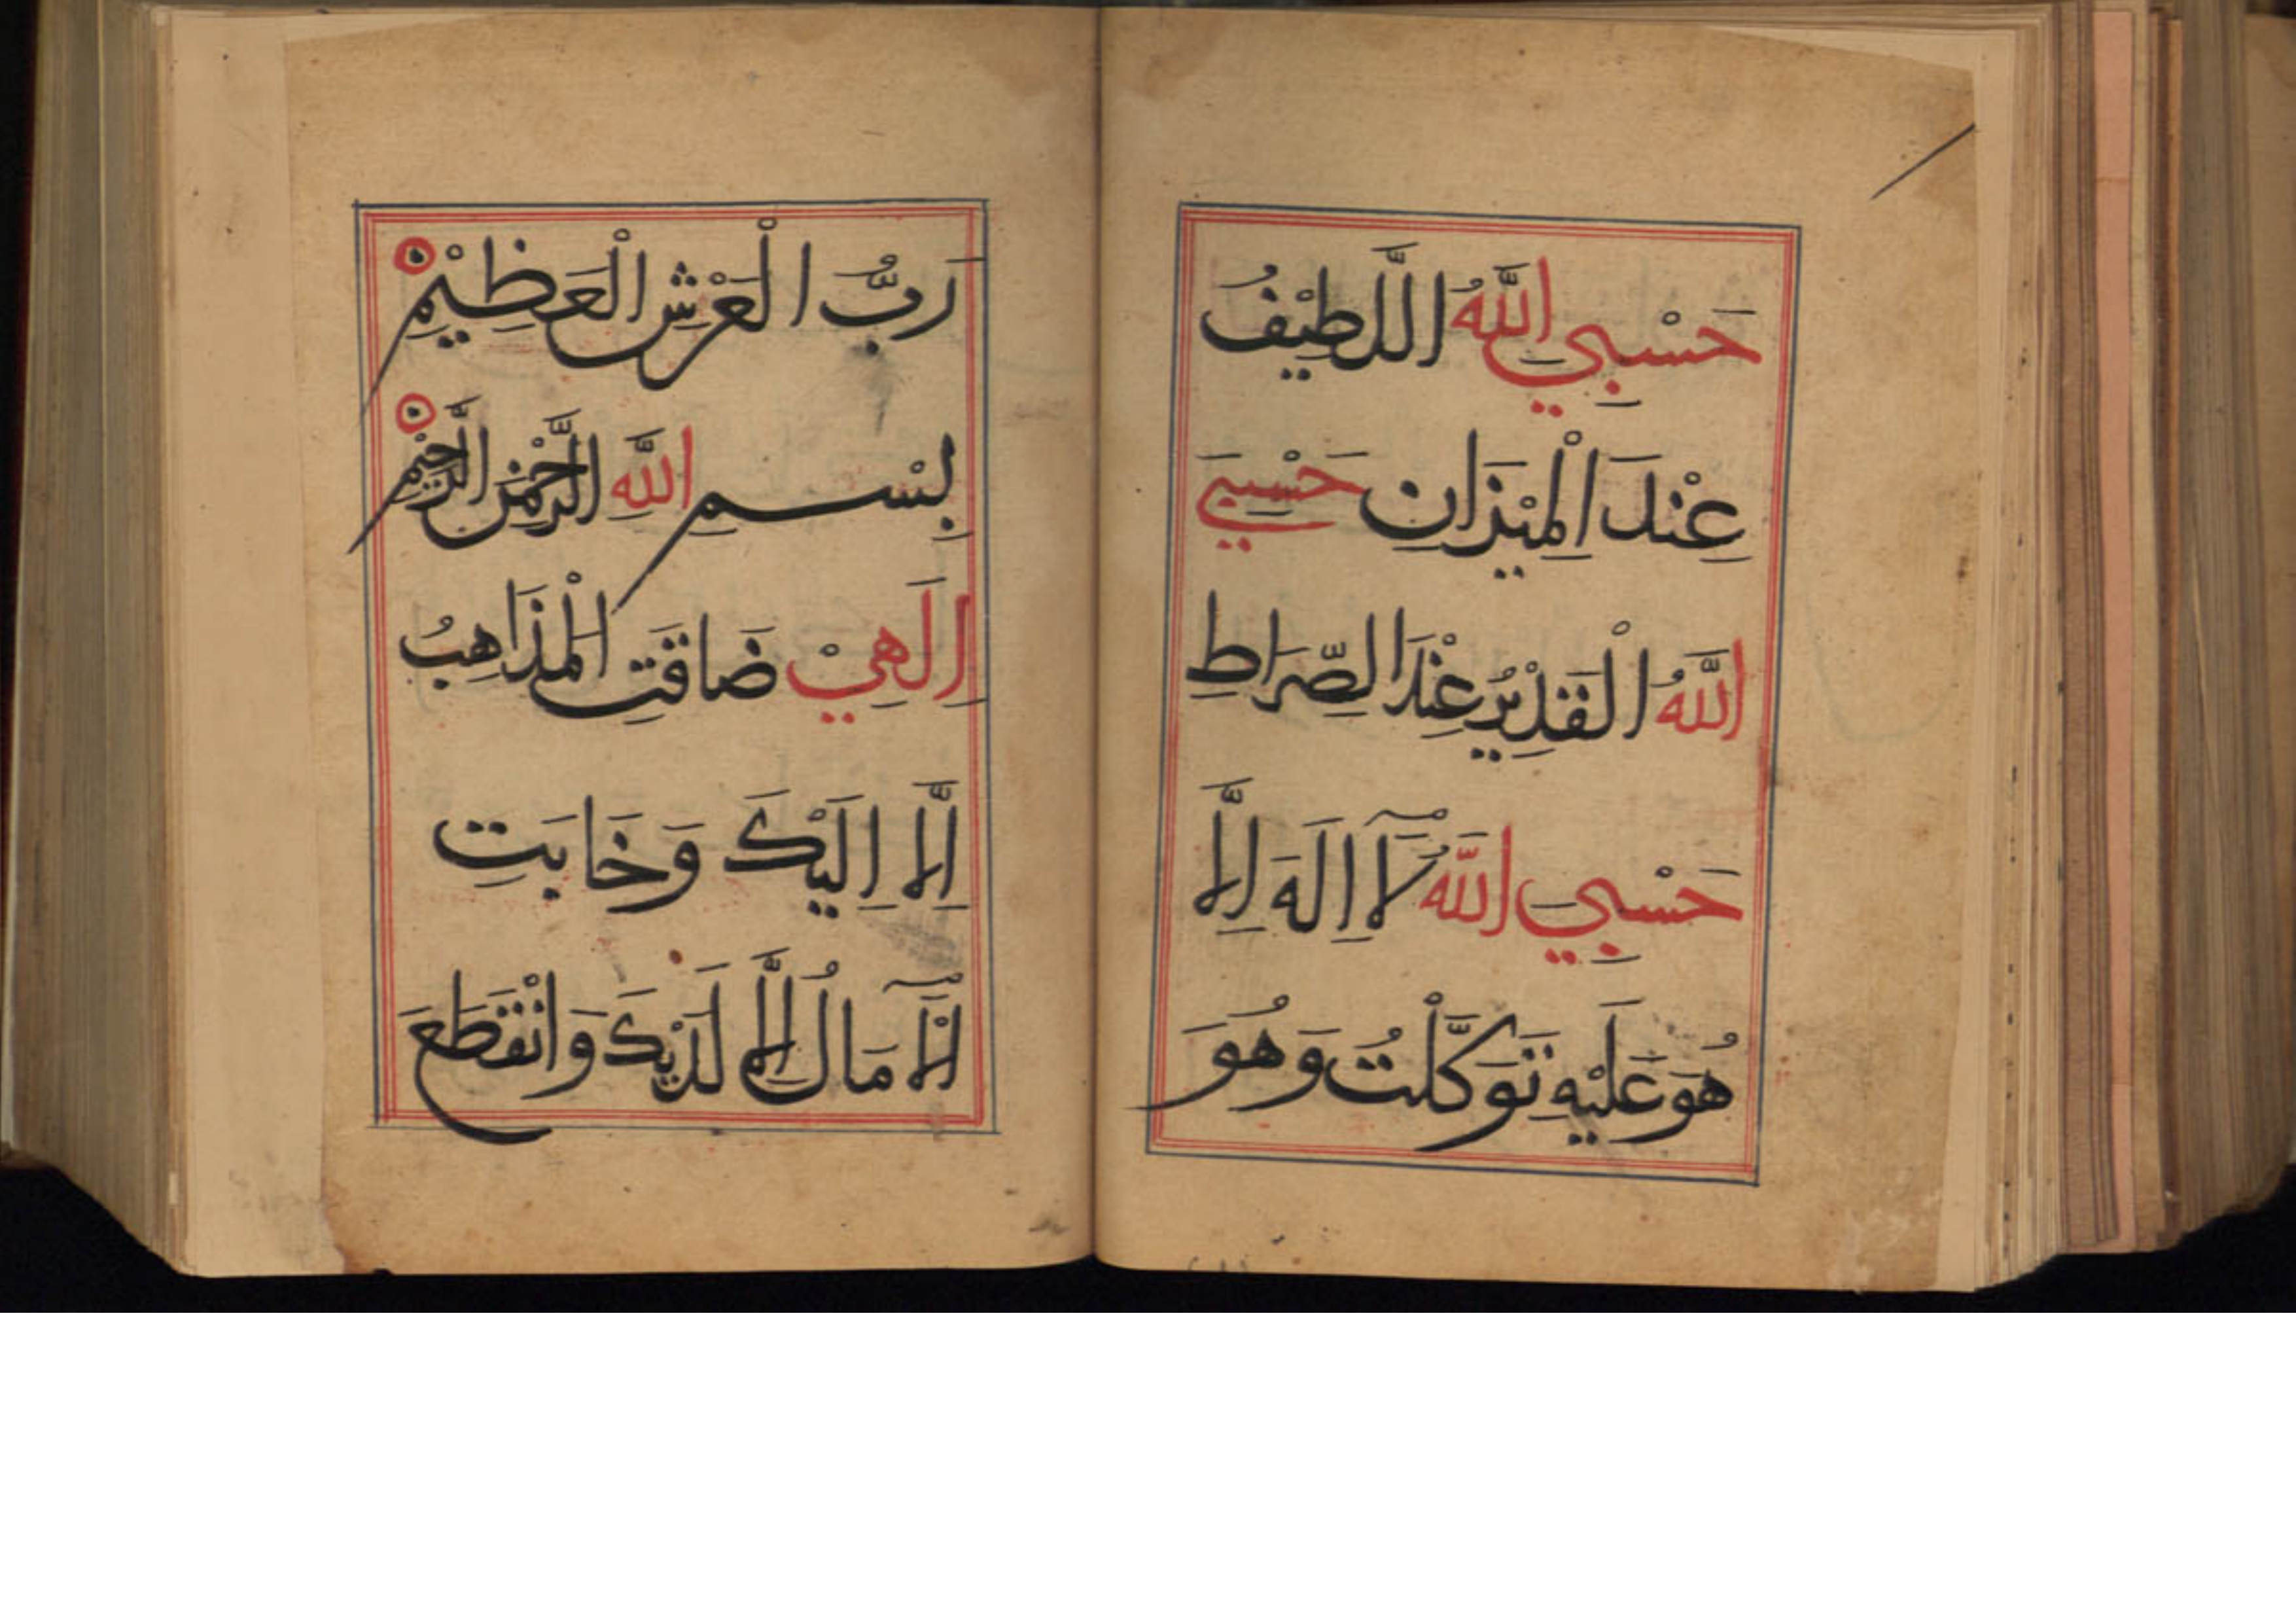 حَسْبِي اللَّهُ اللَّطِيْفُ
عِنْدَ الْمِيْزَانِ حَسْبِيَ
اللَّهُ الْقَدِيْرُ عِنْدَ الصِّرَاطِ
حَسْبِي اللَّهُ لَآ اِلَهَ اِلَّا
هُوَ عَلَيْهِ تَوَكَّلْتُ وَهُوَ
رَبُّ الْعَرْشِ الْعَظِيْمِ
بِسْمِ اللَّهِ الرَّحْمٰنِ الرَّحِيْمِ
اِلَهِيْ ضَاقَتِ الْمَذَاهِبُ
اِلَّا اِلَيْكَ وَخَابَتِ
الْاٰمَالُ اِلَّا لَدَيْكَ وَانْقَطَعَ